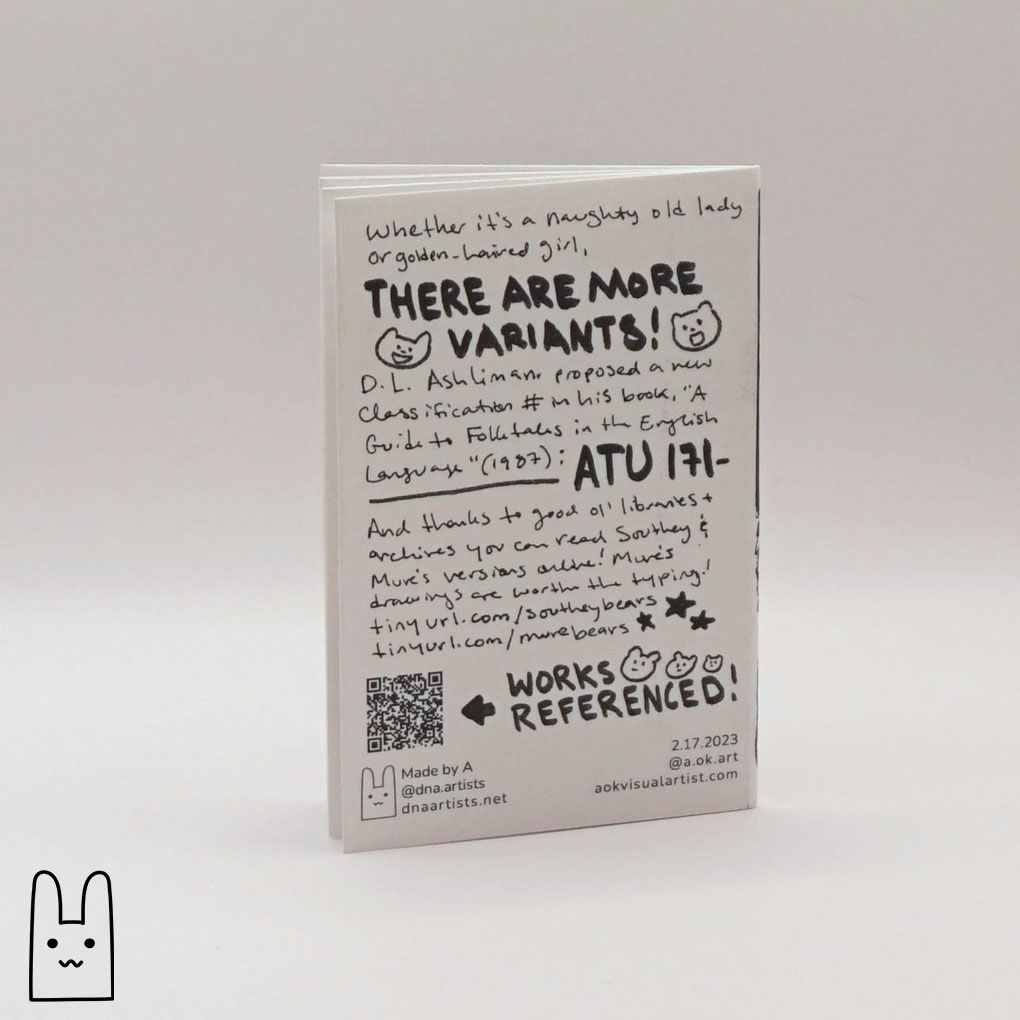 Whether it's a naughty old lady
or golden-haired girl,
THERE ARE MORE
VARIANTS!
D.L. Ashliman proposed a new
classification # in his book, "A
Guide to Folktales in the English
Language" (1987): ATU 171-
And thanks to good ol' libraries +
archives you can read Southey &
Mure's versions online! Mure's
drawings are worth the typing!
tinyurl.com/southeybears
tinyurl.com/murebears
WORKS
REFERENCED!
Made by A
@dna.artists
dnaartists.net
2.17.2023
@a.ok.art
aokvisualartist.com